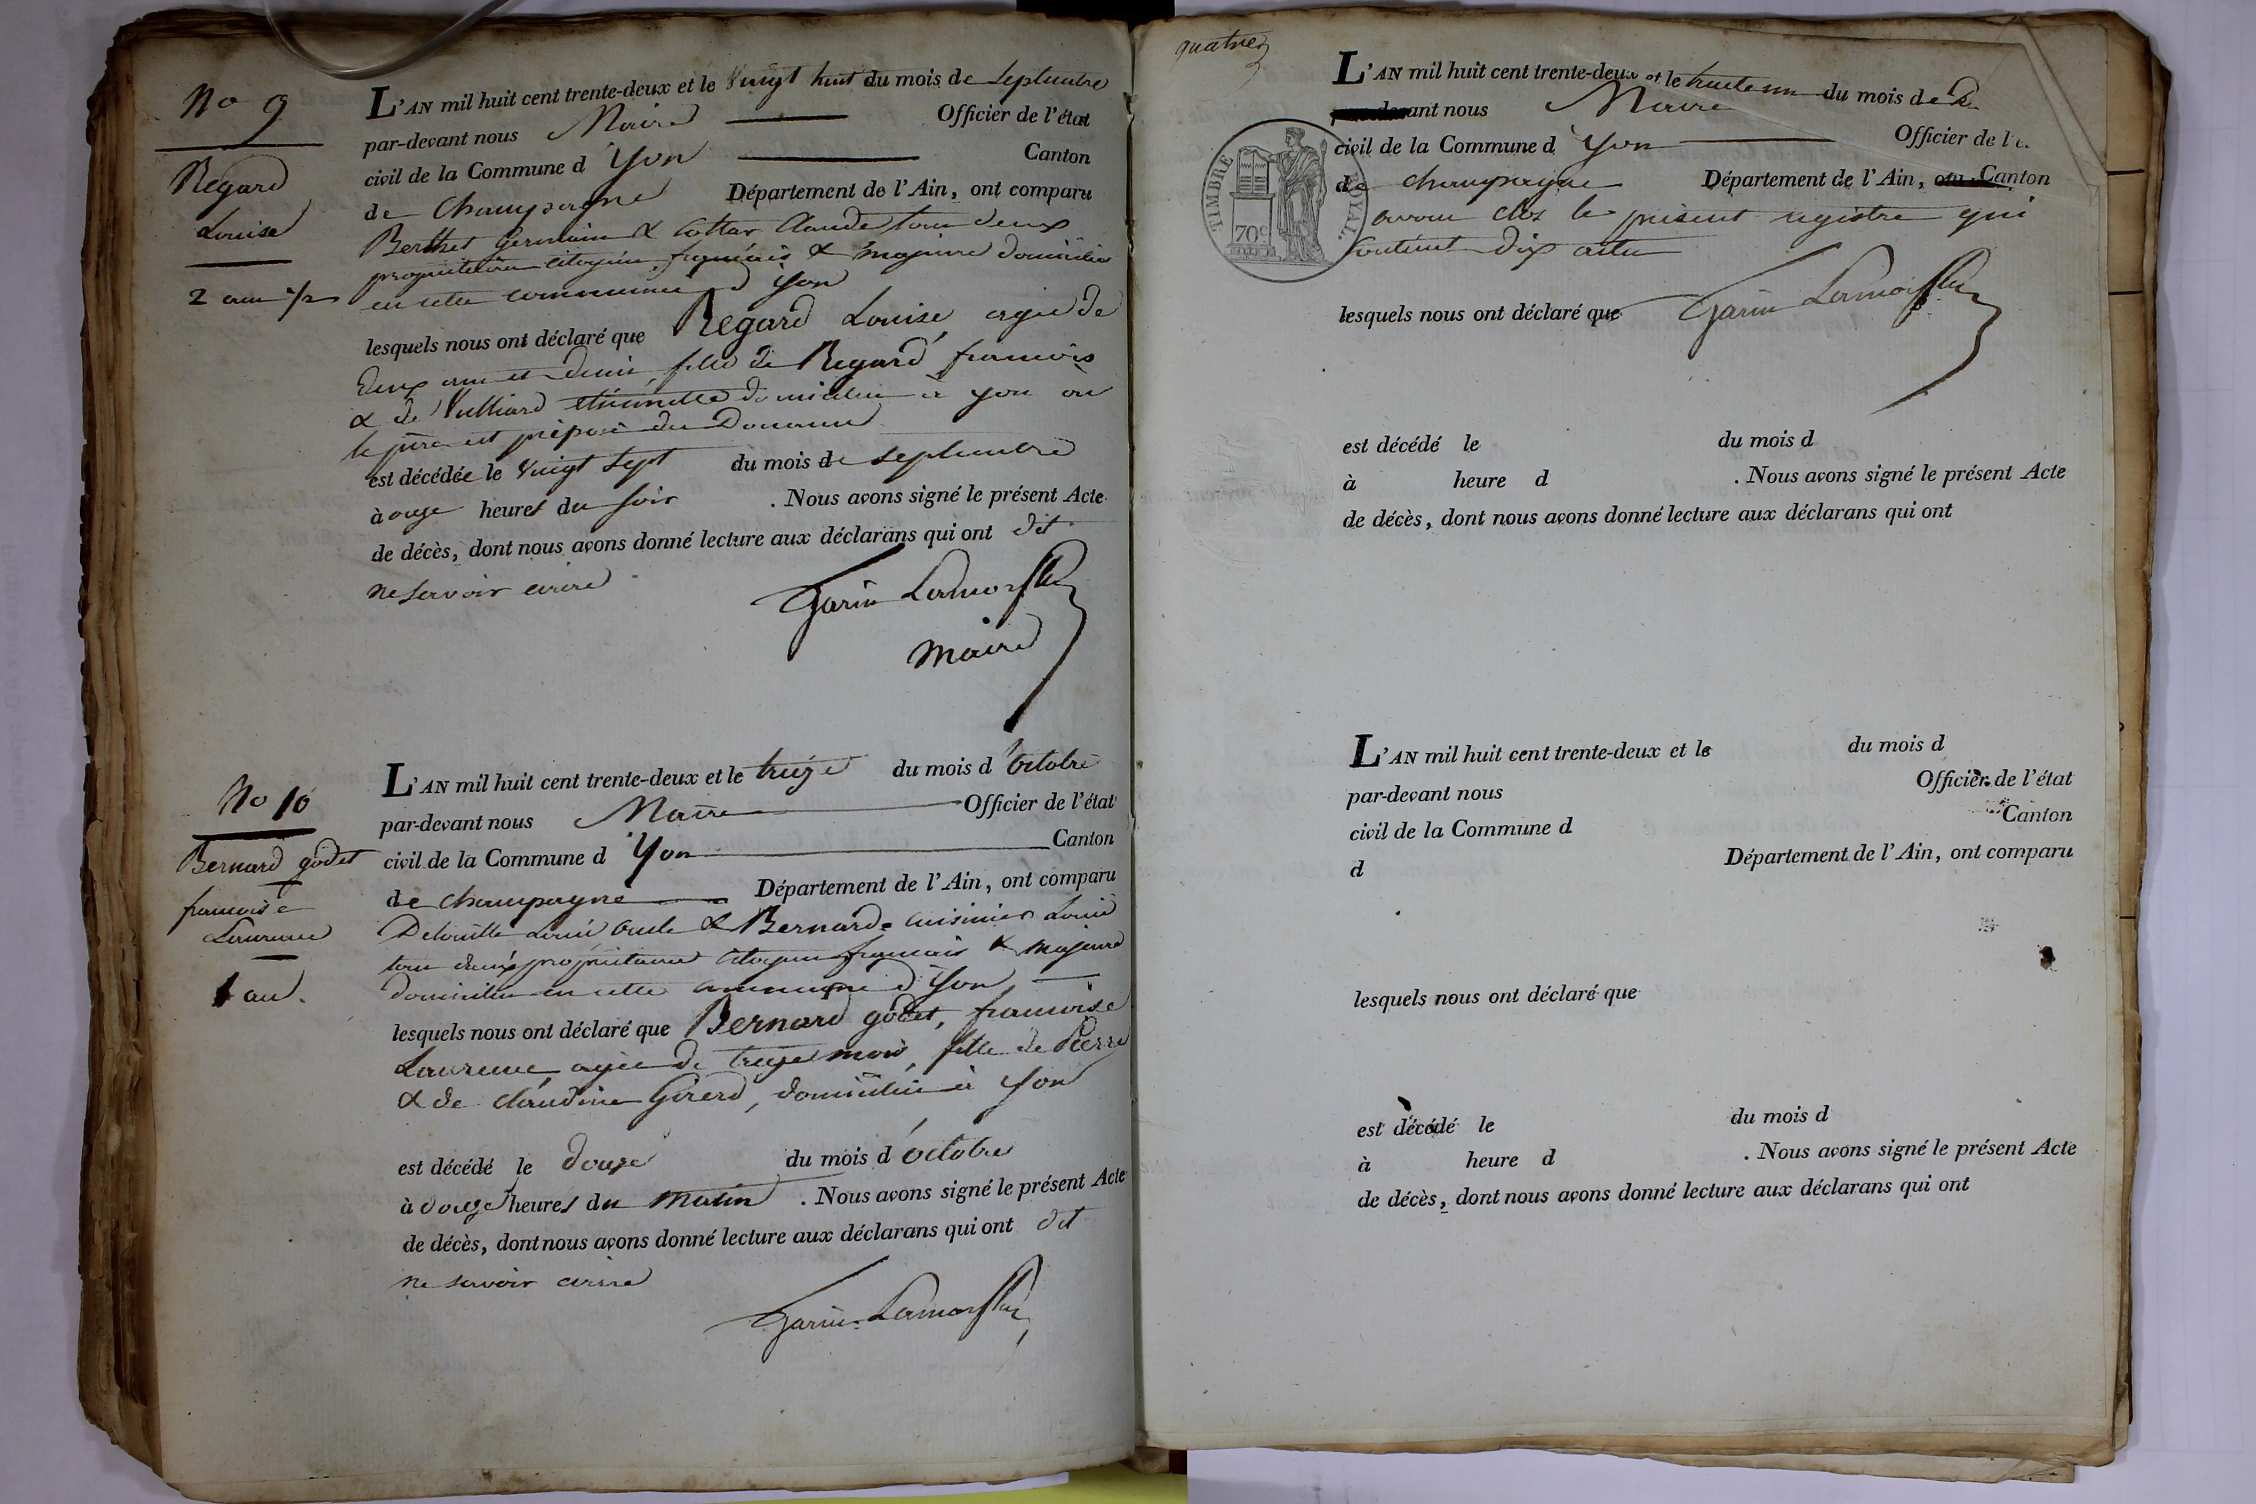 No 9
Regard
Louise
2 ans 1/2
L'AN mil huit cent trente-deux et le vingt huit du mois de Septembre
par-devant nous Maire Officier de l'état
civil de la Commune d'yon Canton
de Champagne Département de l'Ain, ont comparu
Berthet Germain & Cottar Claude tous deux
propriétaires citoyens français & majeurs domiciliés
en cette commune d'yon
lesquels nous ont déclaré que Regard Louise, agée de
deux ans et demie, fille de Regard françois
& de Vulliard domiciliés à yon où
le père est préposé des Douanes
est décédée le vingt sept du mois de septembre
à onze heures du soir . Nous avons signé le présent Acte
de décès, dont nous avons donné lecture aux déclarans qui ont dit
ne savoir ecrire
Garin Lamorflan
Maire
No 10
Bernard godet
françoise
Laurence
1 an.
L'AN mil huit cent trente-deux et le treize du mois d'octobre
par-devant nous Maire Officier de l'état
civil de la Commune d'yon Canton
de champagne Département de l'Ain, ont comparu
Louis & Bernard cuisinier Louis
tous deux propriétaires citoyens français & majeurs
domiciliés en cette commune d'yon
lesquels nous ont déclaré que Bernard godet, françoise
Laurence, agée de treize mois, fille de Pierre
& de claudine Girerd, domiciliés à yon
est décédé le douze du mois d'octobre
à douze heures du matin . Nous avons signé le présent Acte
de décès, dont nous avons donné lecture aux déclarans qui ont dit
ne savoir ecrire
Garin Lamorflan
quatre
L'AN mil huit cent trente-deux et le trente un du mois de
par-devant nous Maire
civil de la Commune d'yon Officier de l'é
de champagne Département de l'Ain, ont Canton
avons clos le présent registre qui
contient dix actes
TIMBRE ROYAL.
70c
lesquels nous ont déclaré que
Garin Lamorflan
est décédé le du mois d
à heure d . Nous avons signé le présent Acte
de décès, dont nous avons donné lecture aux déclarans qui ont
L'AN mil huit cent trente-deux et le du mois d
par-devant nous Officier de l'état
civil de la Commune d Canton
d Département de l'Ain, ont comparu
lesquels nous ont déclaré que
est décédé le du mois d
à heure d . Nous avons signé le présent Acte
de décès, dont nous avons donné lecture aux déclarans qui ont